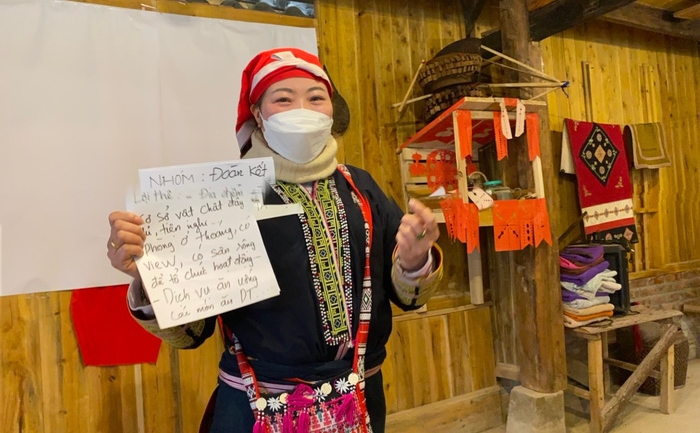 NHÓM: Đoàn kết
Lợi thế: - Địa điểm
Cơ sở vật chất đầy
đủ, tiện nghi...
Phòng ở thoáng, có
view, có sân rộng
để tổ chức hoạt động...
- Dịch vụ ăn uống
Các món ăn DT